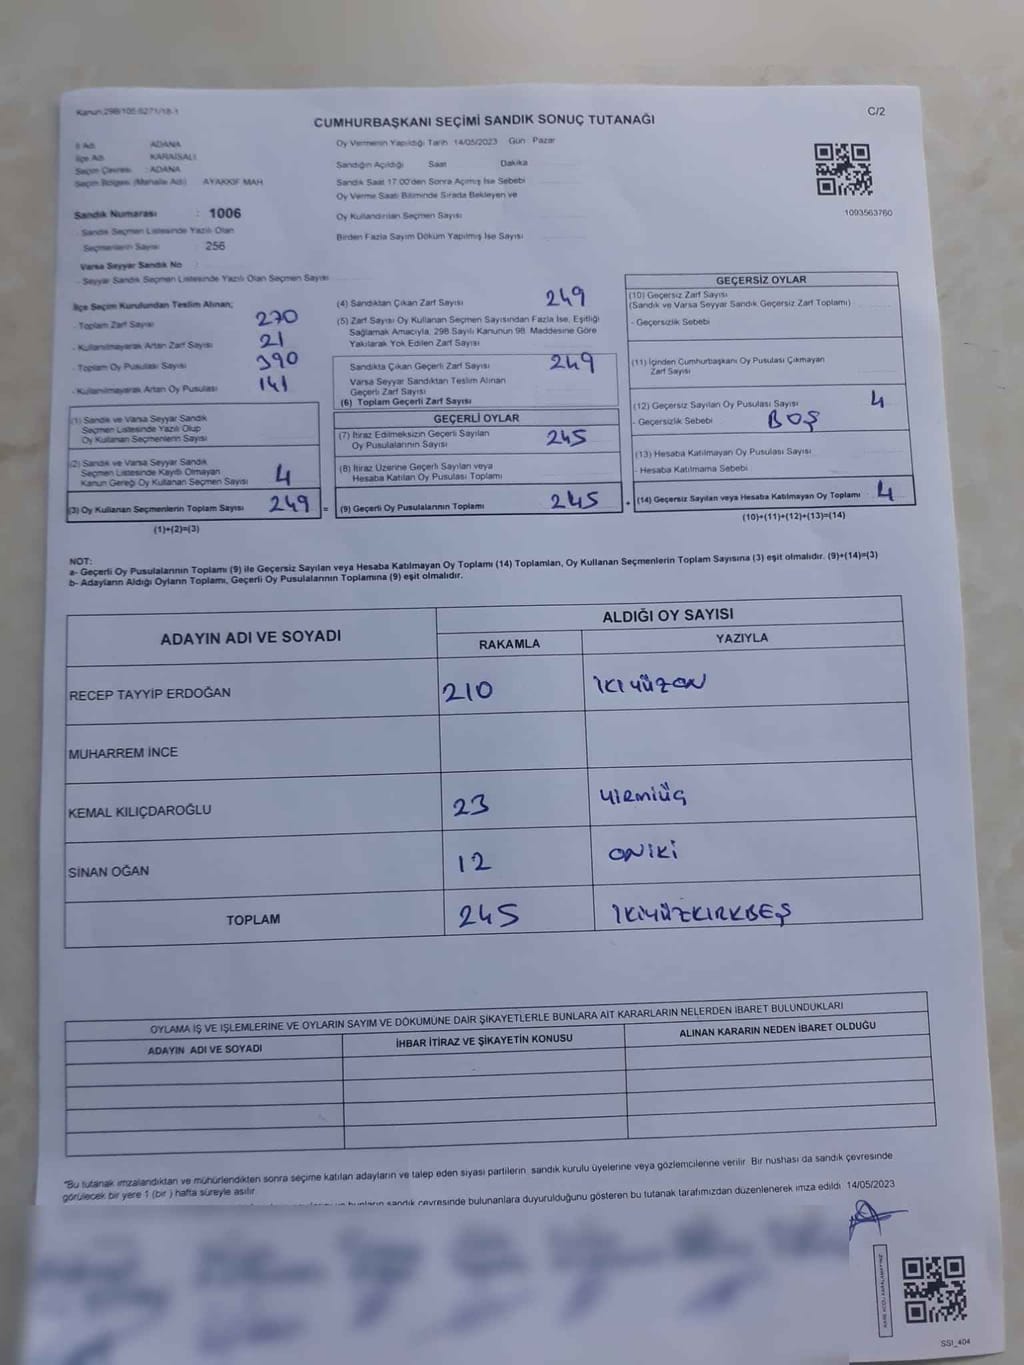 Kanun:298/105-6271/18-1
C/2
CUMHURBAŞKANI SEÇİMİ SANDIK SONUÇ TUTANAĞI
İl Adı : ADANA
İlçe Adı : KARAİSALI
Seçim Çevresi : ADANA
Seçim Bölgesi (Mahalle Adı) AYAKKIF MAH
Sandık Numarası : 1006
- Sandık Seçmen Listesinde Yazılı Olan
Seçmenlerin Sayısı 256
Varsa Seyyar Sandık No
- Seyyar Sandık Seçmen Listesinde Yazılı Olan Seçmen Sayısı
Oy Vermenin Yapıldığı Tarih 14/05/2023 Gün : Pazar
Sandığın Açıldığı Saat Dakika
Sandık Saat 17:00'den Sonra Açımış İse Sebebi
Oy Verme Saati Bitiminde Sırada Bekleyen ve
Oy Kullandırılan Seçmen Sayısı
Birden Fazla Sayım Döküm Yapılmış İse Sayısı
1093563760
İlçe Seçim Kurulundan Teslim Alınan;
- Toplam Zarf Sayısı 270
- Kullanılmayarak Artan Zarf Sayısı 21
- Toplam Oy Pusulası Sayısı 390
- Kullanılmayarak Artan Oy Pusulası 141
(1) Sandık ve Varsa Seyyar Sandık
Seçmen Listesinde Yazılı Olup
Oy Kullanan Seçmenlerin Sayısı
(2) Sandık ve Varsa Seyyar Sandık
Seçmen Listesinde Kayıtlı Olmayan
Kanun Gereği Oy Kullanan Seçmen Sayısı 4
(3) Oy Kullanan Seçmenlerin Toplam Sayısı 249 =
(1)+(2)=(3)
(4) Sandıktan Çıkan Zarf Sayısı 249
(5) Zarf Sayısı Oy Kullanan Seçmen Sayısından Fazla İse, Eşitliği
Sağlamak Amacıyla, 298 Sayılı Kanunun 98. Maddesine Göre
Yakılarak Yok Edilen Zarf Sayısı
Sandıkta Çıkan Geçerli Zarf Sayısı 249
Varsa Seyyar Sandıktan Teslim Alınan
Geçerli Zarf Sayısı
(6) Toplam Geçerli Zarf Sayısı
GEÇERLİ OYLAR
(7) İtiraz Edilmeksizin Geçerli Sayılan
Oy Pusulalarının Sayısı 245
(8) İtiraz Üzerine Geçerli Sayılan veya
Hesaba Katılan Oy Pusulası Toplamı
(9) Geçerli Oy Pusulalarının Toplamı 245 +
GEÇERSİZ OYLAR
(10) Geçersiz Zarf Sayısı
(Sandık ve Varsa Seyyar Sandık Geçersiz Zarf Toplamı)
- Geçersizlik Sebebi
(11) İçinden Cumhurbaşkanı Oy Pusulası Çıkmayan
Zarf Sayısı
(12) Geçersiz Sayılan Oy Pusulası Sayısı 4
- Geçersizlik Sebebi BOŞ
(13) Hesaba Katılmayan Oy Pusulası Sayısı
- Hesaba Katılmama Sebebi
(14) Geçersiz Sayılan veya Hesaba Katılmayan Oy Toplamı 4
(10)+(11)+(12)+(13)=(14)
NOT:
a- Geçerli Oy Pusulalarının Toplamı (9) ile Geçersiz Sayılan veya Hesaba Katılmayan Oy Toplamı (14) Toplamları, Oy Kullanan Seçmenlerin Toplam Sayısına (3) eşit olmalıdır. (9)+(14)=(3)
b- Adayların Aldığı Oyların Toplamı, Geçerli Oy Pusulalarının Toplamına (9) eşit olmalıdır.
ADAYIN ADI VE SOYADI
ALDIĞI OY SAYISI
RAKAMLA YAZIYLA
RECEP TAYYİP ERDOĞAN 210 İKİYÜZON
MUHARREM İNCE
KEMAL KILIÇDAROĞLU 23 YİRMİÜÇ
SİNAN OĞAN 12 ONİKİ
TOPLAM 245 İKİYÜZKIRKBEŞ
OYLAMA İŞ VE İŞLEMLERINE VE OYLARIN SAYIM VE DÖKÜMÜNE DAİR ŞİKAYETLERLE BUNLARA AİT KARARLARIN NELERDEN İBARET BULUNDUKLARI
ADAYIN ADI VE SOYADI İHBAR İTİRAZ VE ŞİKAYETİN KONUSU ALINAN KARARIN NEDEN İBARET OLDUĞU
"Bu tutanak imzalandıktan ve mühürlendikten sonra seçime katılan adayların ve talep eden siyasi partilerin, sandık kurulu üyelerine veya gözlemcilerine verilir. Bir nushası da sandık çevresinde
görülecek bir yere 1 (bir) hafta süreyle asılır.
bunların sandık çevresinde bulunanlara duyurulduğunu gösteren bu tutanak tarafımızdan düzenlenerek imza edildi 14/05/2023
SSI_404